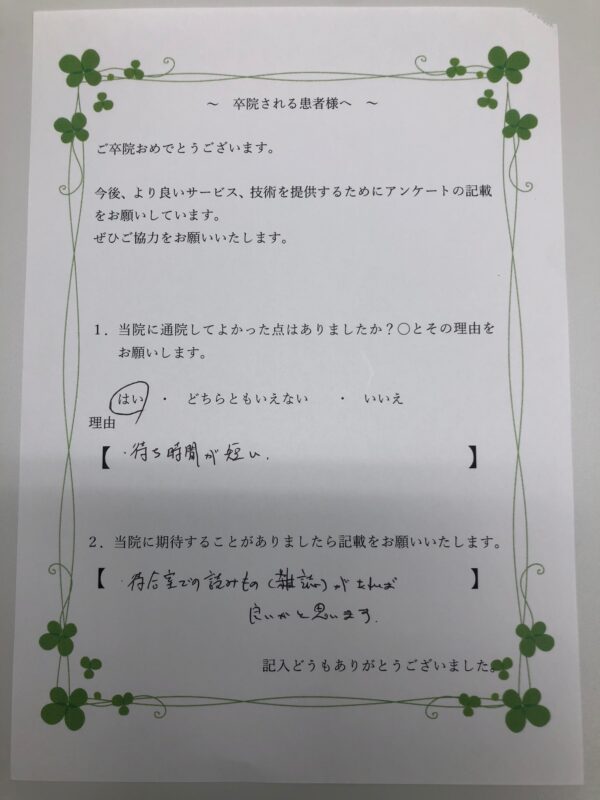 ～ 卒院される患者様へ ～
ご卒院おめでとうございます。
今後、より良いサービス、技術を提供するためにアンケートの記載
をお願いしています。
ぜひご協力をお願いいたします。
1．当院に通院してよかった点はありましたか？○とその理由を
お願いします。
はい ・ どちらともいえない ・ いいえ
理由
【 ・待ち時間が短い. 】
2．当院に期待することがありましたら記載をお願いいたします。
【 ・待合室での読みもの(雑誌)があれば 】
良いかと思います.
記入どうもありがとうございました。